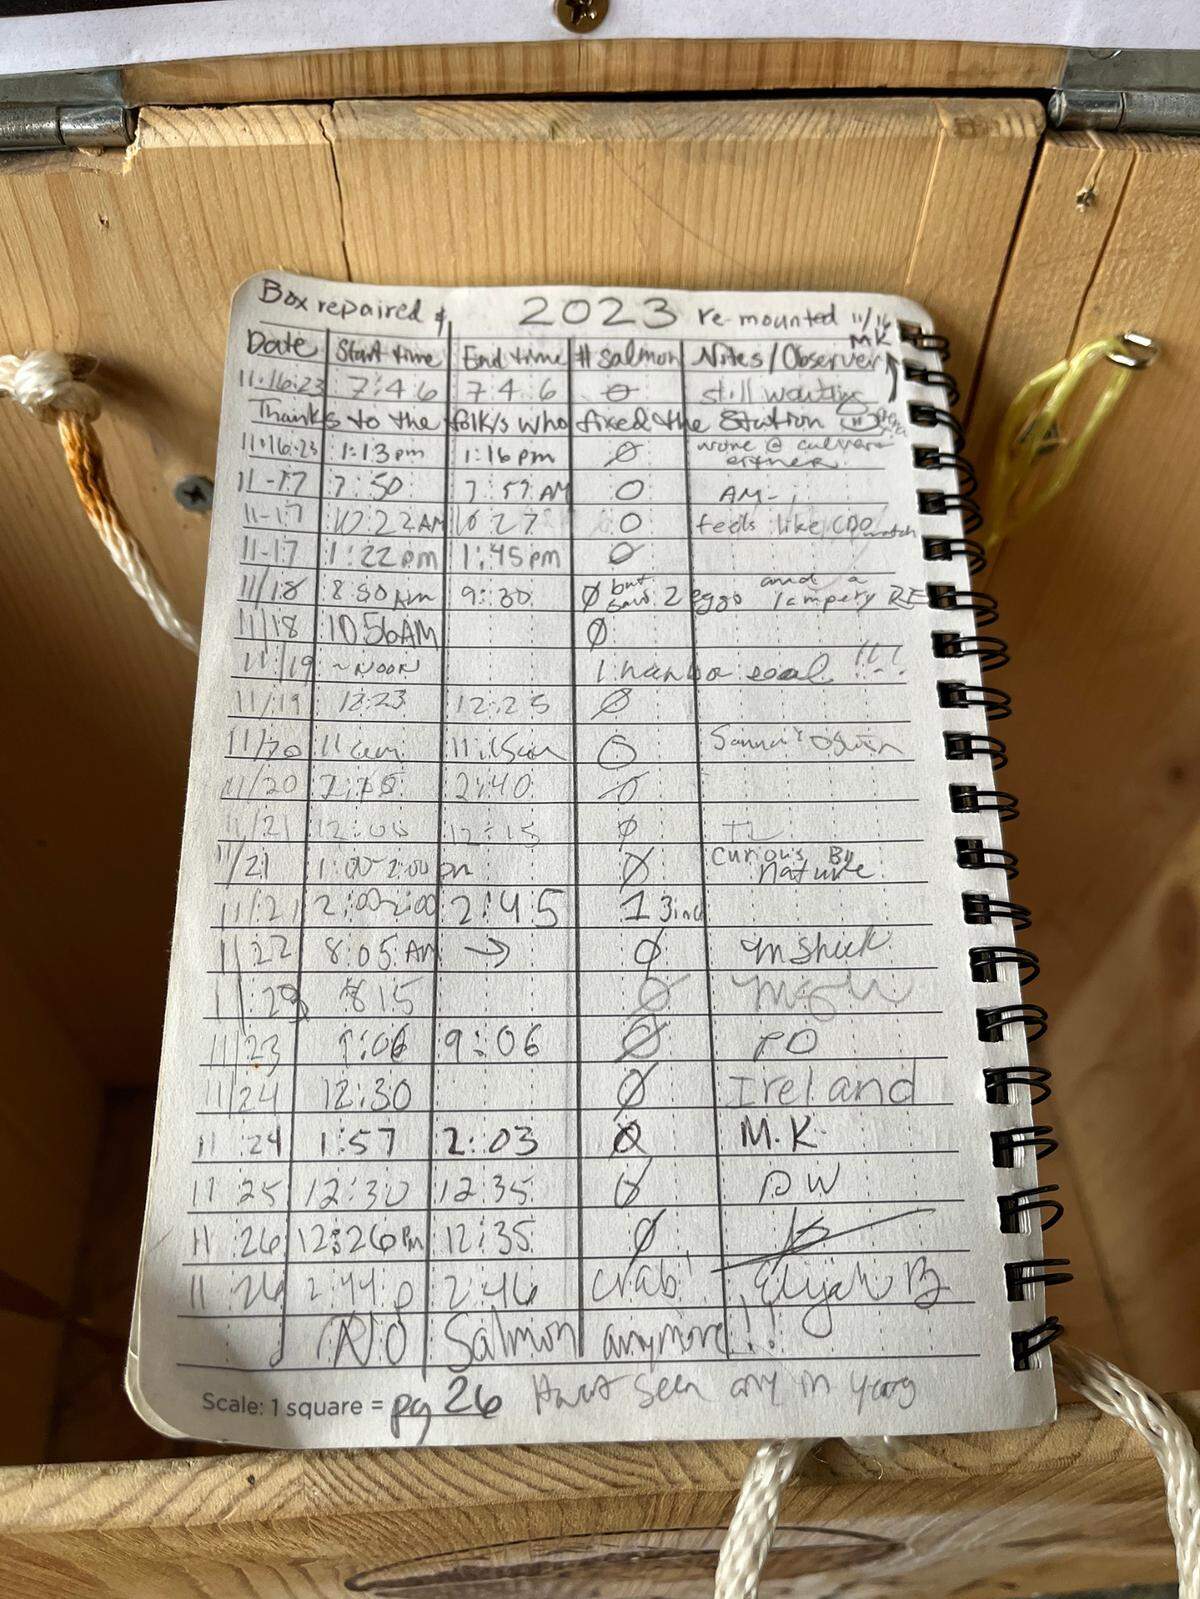 Box repaired & 2023 re-mounted 11/16
MK
Date Start time End time # salmon Notes/Observer
11.16.23 7:46 7:46 0 still waiting
Thanks to the folk/s who fixed the Station
11.16.23 1:13 pm 1:16 pm Ø none @ culvert
either
11-17 7:50 7:57 AM 0 AM-
11-17 10:22 AM 10:27 0 feels like COO watch
11-17 1:22 pm 1:45 pm Ø
11/18 8:50 Am 9:30 Ø but saw 2 eggs and a lamprey RE
11/18 10:56 AM Ø
11/19 ~NOON 1 harbor seal !!!
11/19 12:23 12:25 Ø
11/20 11 am 11:15am 0
11/20 2:40 Ø
11/21 12:05 12:15 Ø TL
11/21 1:00-2:00 pm Ø Curious By
Nature
11/21 2:00 2:45 1 3inc
11/22 8:05 AM → Ø
815 Ø
11/23 9:06 Ø PO
11/24 12:30 Ø Ireland
11 24 1:57 2:03 Ø M.K.
11 25 12:30 12:35 Ø DW
11 26 12:26 Pm 12:35 Ø
11 26 2:44 p 2:46 Crab! Elijah B
NO Salmon anymore!!
Scale: 1 square = pg 26 Havet seen any in years